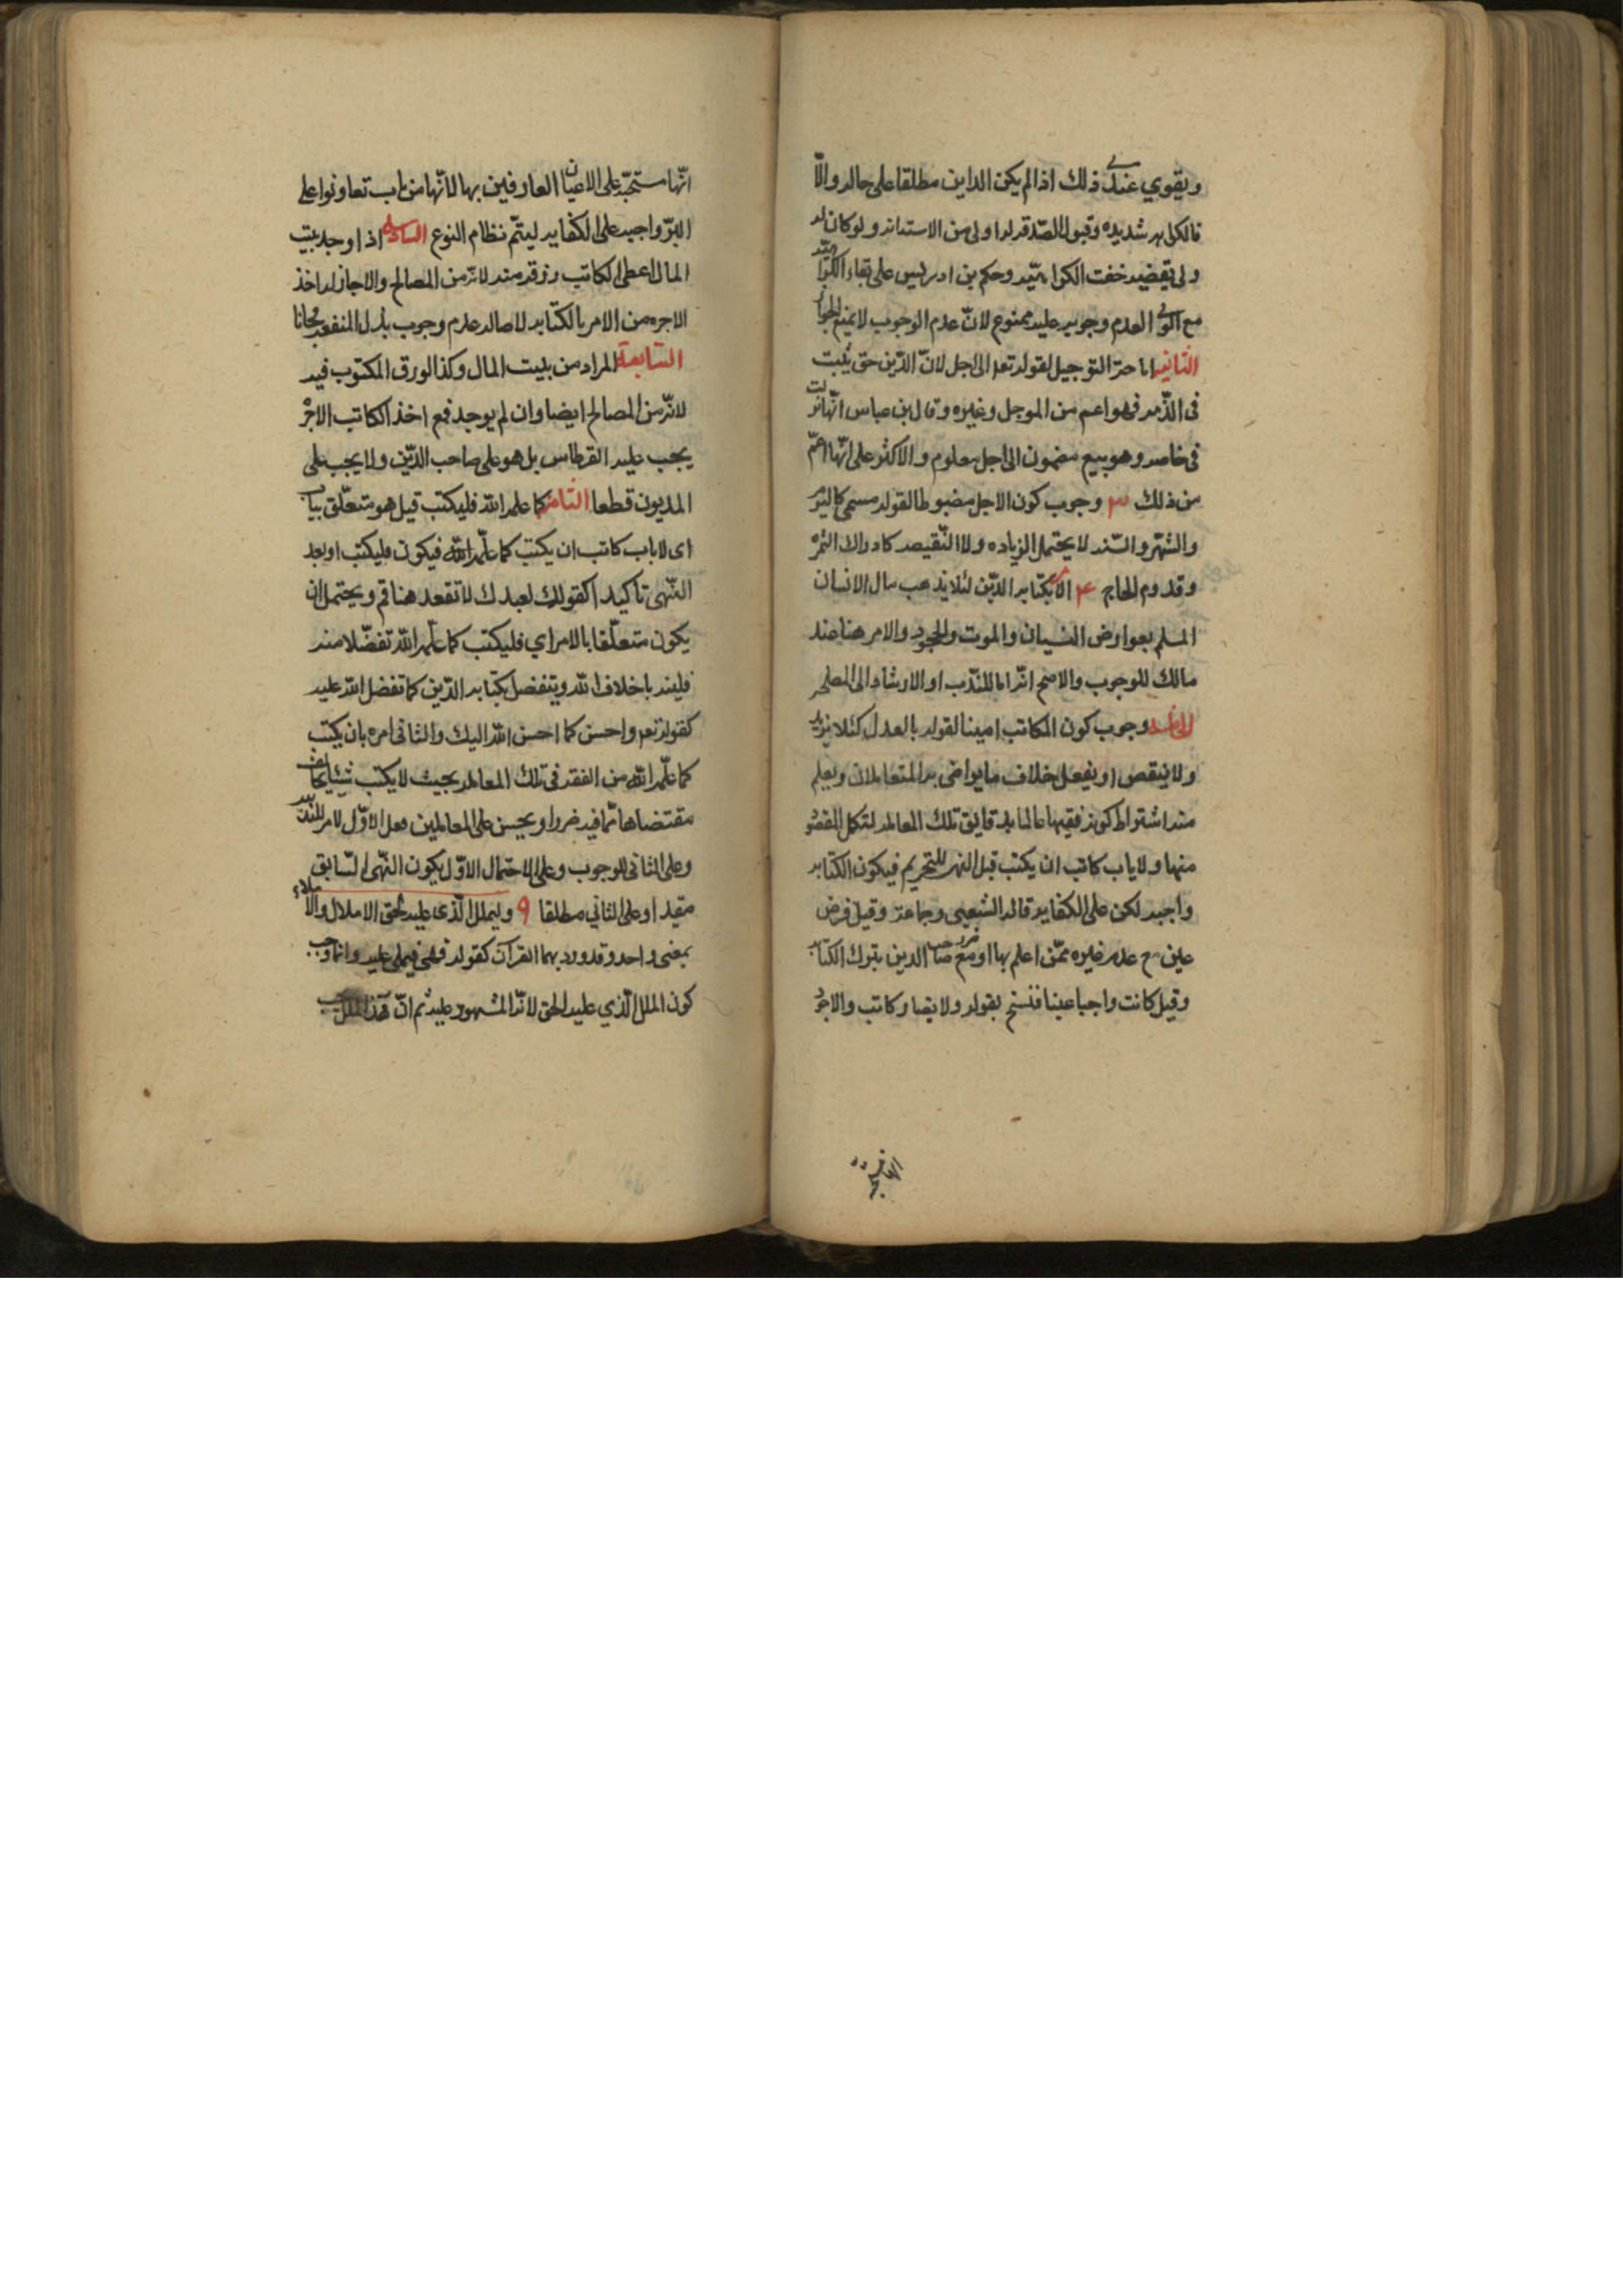 ويقوي عندي ذلك اذا لم يكن الداين مطلقا على حاله والّا
فالكراهه شديده وقبول الصّدقه له اولى من الاستدانه ولو كان له
ولى يقضيه خفت الكراهيّه وحكم بن ادريس على بقاء الكراهيّه
مع الولي لعدم وجوبه عليه ممنوع لانّ عدم الوجوب لا يمنع الجواز
الثانيه اباحة التوجيل لقوله تعه الى اجل لانّ الدّين حق يثبت
فى الذّمه فهو اعم من الموجل وغيره وقال بن عباس انّها نزلت
فى خاصه وهو بيع مضمون الى اجل معلوم والاكثر على انّها اعمّ
من ذلك ٣ وجوب كون الاجل مضبوطا لقوله مسمى كاليوم
والشهر والسّنه لا يحتمل الزياده ولا النّقيصه كادراك الثمره
وقدوم الحاج ٤ الامر بكتابه الدّين لئلا يذهب مال الانسان
المسلم بعوارض النسيان والموت والجحود والامر هنا عند
مالك للوجوب والاصح انّه اما للنّدب او الارشاد الى المصلحه
الخامسه وجوب كون الكاتب امينا لقوله بالعدل كئلا يزيد
ولا ينقص او يفعل خلاف ما يراضى به المتعاملان ويعلم
منه اشتراط كونه فقيها عالما بدقايق تلك المعامله لتكمل المقصود
منها ولا ياب كاتب ان يكتب قبل النهى للتحريم فيكون الكتابه
واجبه لكن على الكفايه قاله الشعبى وجماعة وقيل فرض
عين مع عدم غيره ممّن اعلم بها او مع ضرر صاحب الدين بترك الكتابه
وقيل كانت واجبا عينا فنسخ بقوله ولا يضار كاتب والاجود
انّها مستحبّه على الاعيان العارفين بها لانّها من باب تعاونوا على
البرّ واجبه على الكفايه ليتمّ نظام النوع السادسه اذا وجد بيت
المال اعطى الكاتب رزقه منه لانّه من المصالح والا جاز له اخذ
الاجره من الامر بالكتابه لاصاله عدم وجوب بذل المنفعه مجانا
السّابعة المراد من بيت المال وكذا الورق المكتوب فيه
لانّه من المصالح ايضا وان لم يوجد فمع اخذ الكاتب الاجرْ
يجب عليه القرطاس بل هو على صاحب الدّين ولا يجب على
المديون قطعا الثامنه كما علمه الله فليكتب قيل هو متعلّق بياب
اى لا ياب كاتب ان يكتب كما علّمه الله فيكون فليكتب او بعد
النّهى تاكيدا كقولك لعبدك لا تقعد هنا قم ويحتمل ان
يكون متعلّقا بالامر اي فليكتب كما علّمه الله تفضّلا منه
كقوله تعه واحسن كما احسن الله اليك والثانى امره بان يكتب
كما علّمه الله من الفقه فى تلك المعامله بحيث لا يكتب شيئا يخالف
مقتضاها ممّا فيه ضررا ويحسن على المعاملين فعل الاوّل الامر للنّدبيّه
وعلى الثانى للوجوب وعلى الاحتمال الاوّل يكون النّهى السّابق
مقيدا وعلى الثاني مطلقا ٩ وليملل الّذى عليه الحق الاملال والاملاء
بمعنى واحد وقد ورد بهما القرآن كقوله فهى تملى عليه وانما وجب
كون الملل الّذي عليه الحق لانّه المشهود عليه ثم انّ هذا الملل